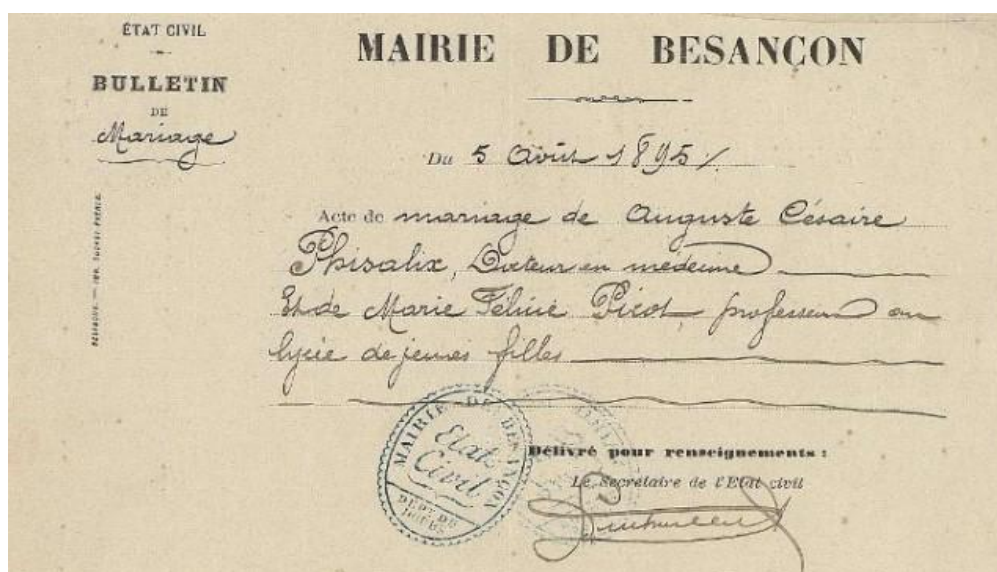 ÉTAT CIVIL
BULLETIN
DE
Mariage
MAIRIE DE BESANÇON
Du 5 Août 1895
Acte de mariage de Auguste Césaire
Phisalix, Docteur en médecine
Et de Marie Félicie Picot, professeur au
lycée de jeunes filles
MAIRIE DE BESANÇON
Etat
Civil
DEPT DU
DOUBS
Délivré pour renseignements :
Le Secrétaire de l'Etat civil